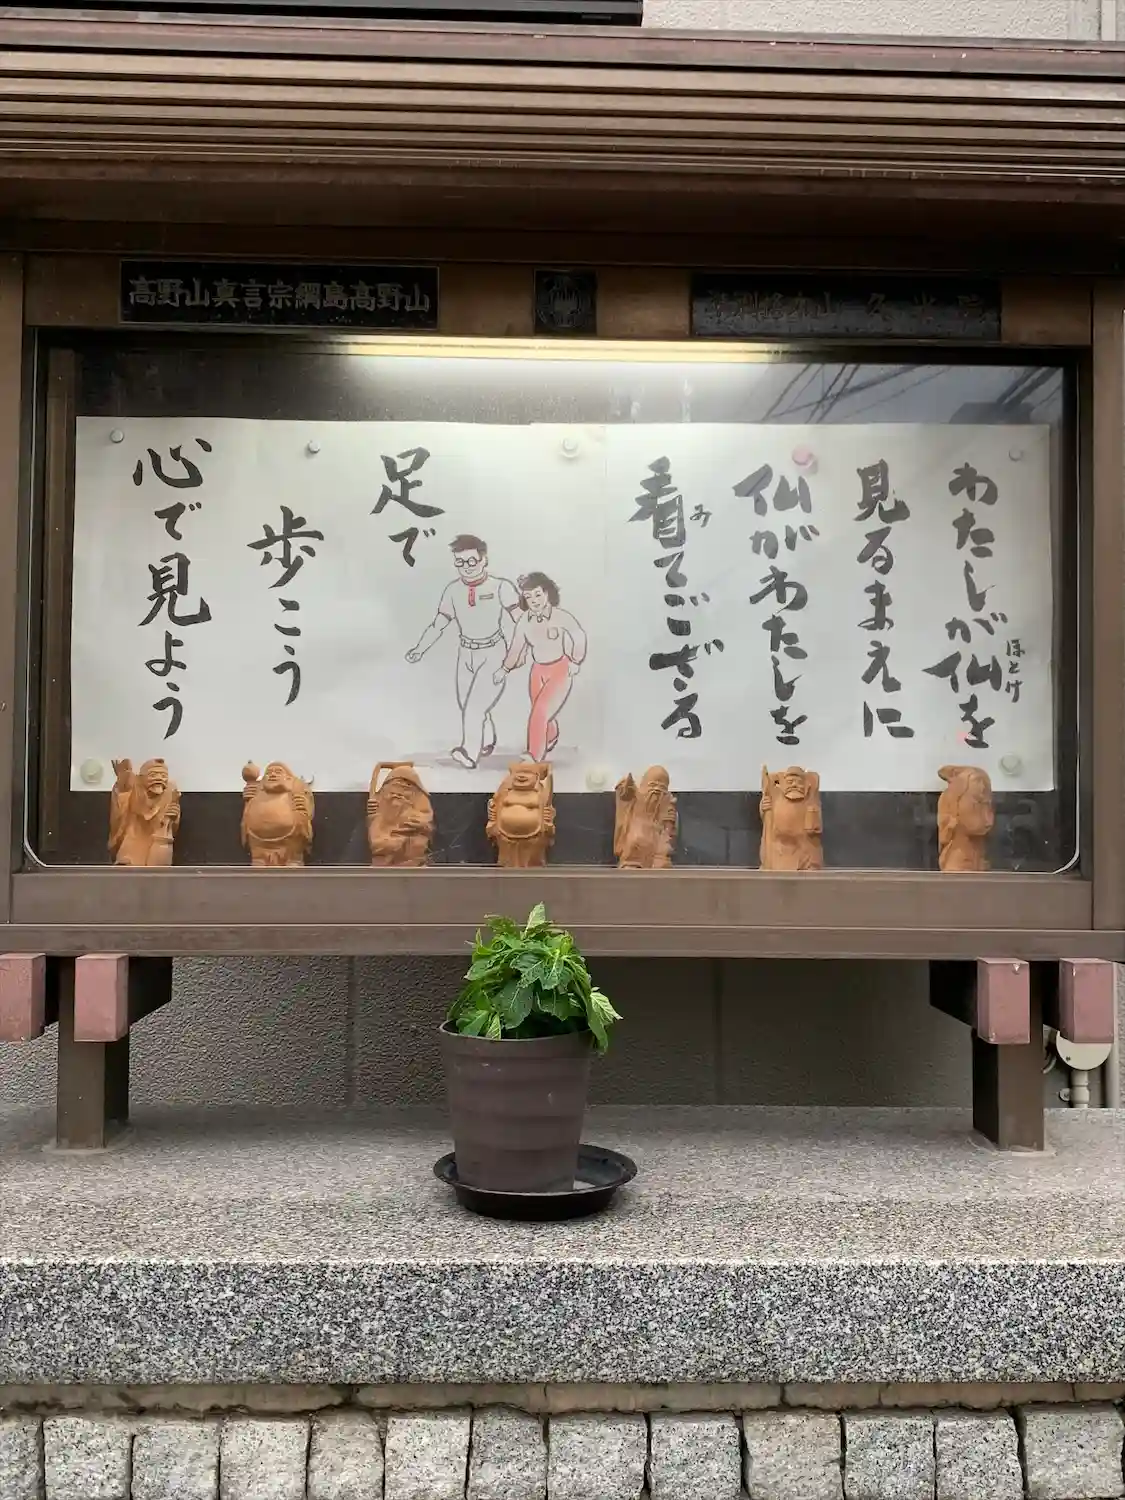 高野山真言宗綱島高野山
わたしが仏を
ほとけ
見るまえに
仏がわたしを
看てござる
み
足で
歩こう
心で見よう